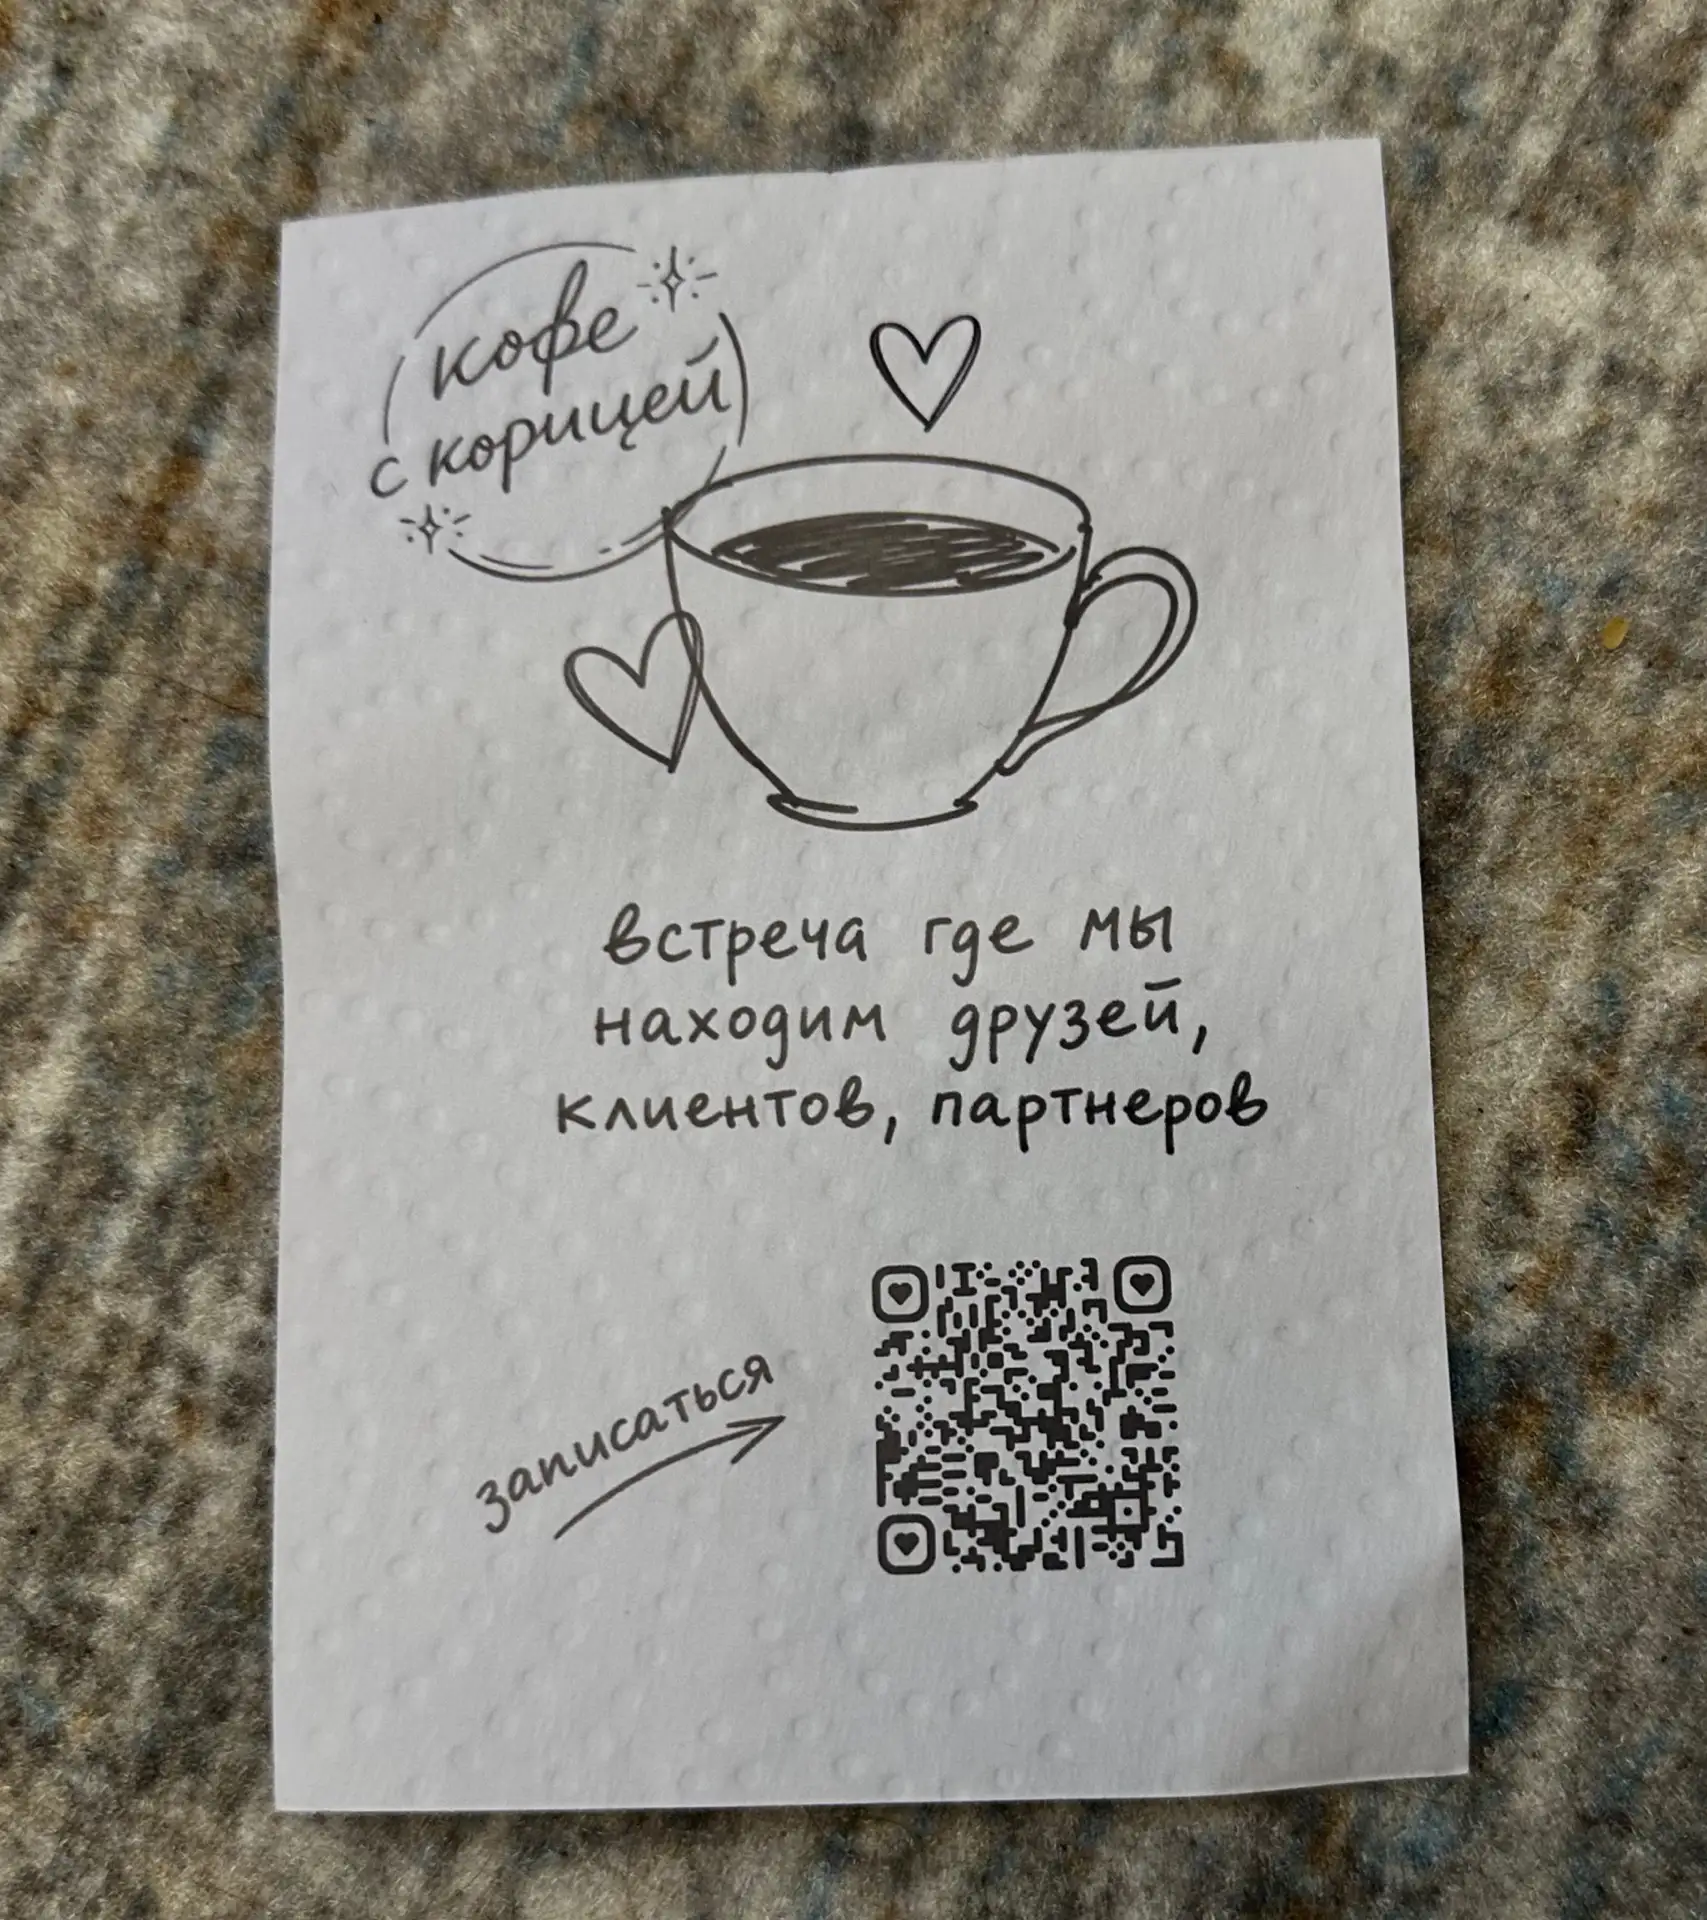 кофе
с корицей
встреча где мы
находим друзей,
клиентов, партнеров
записаться